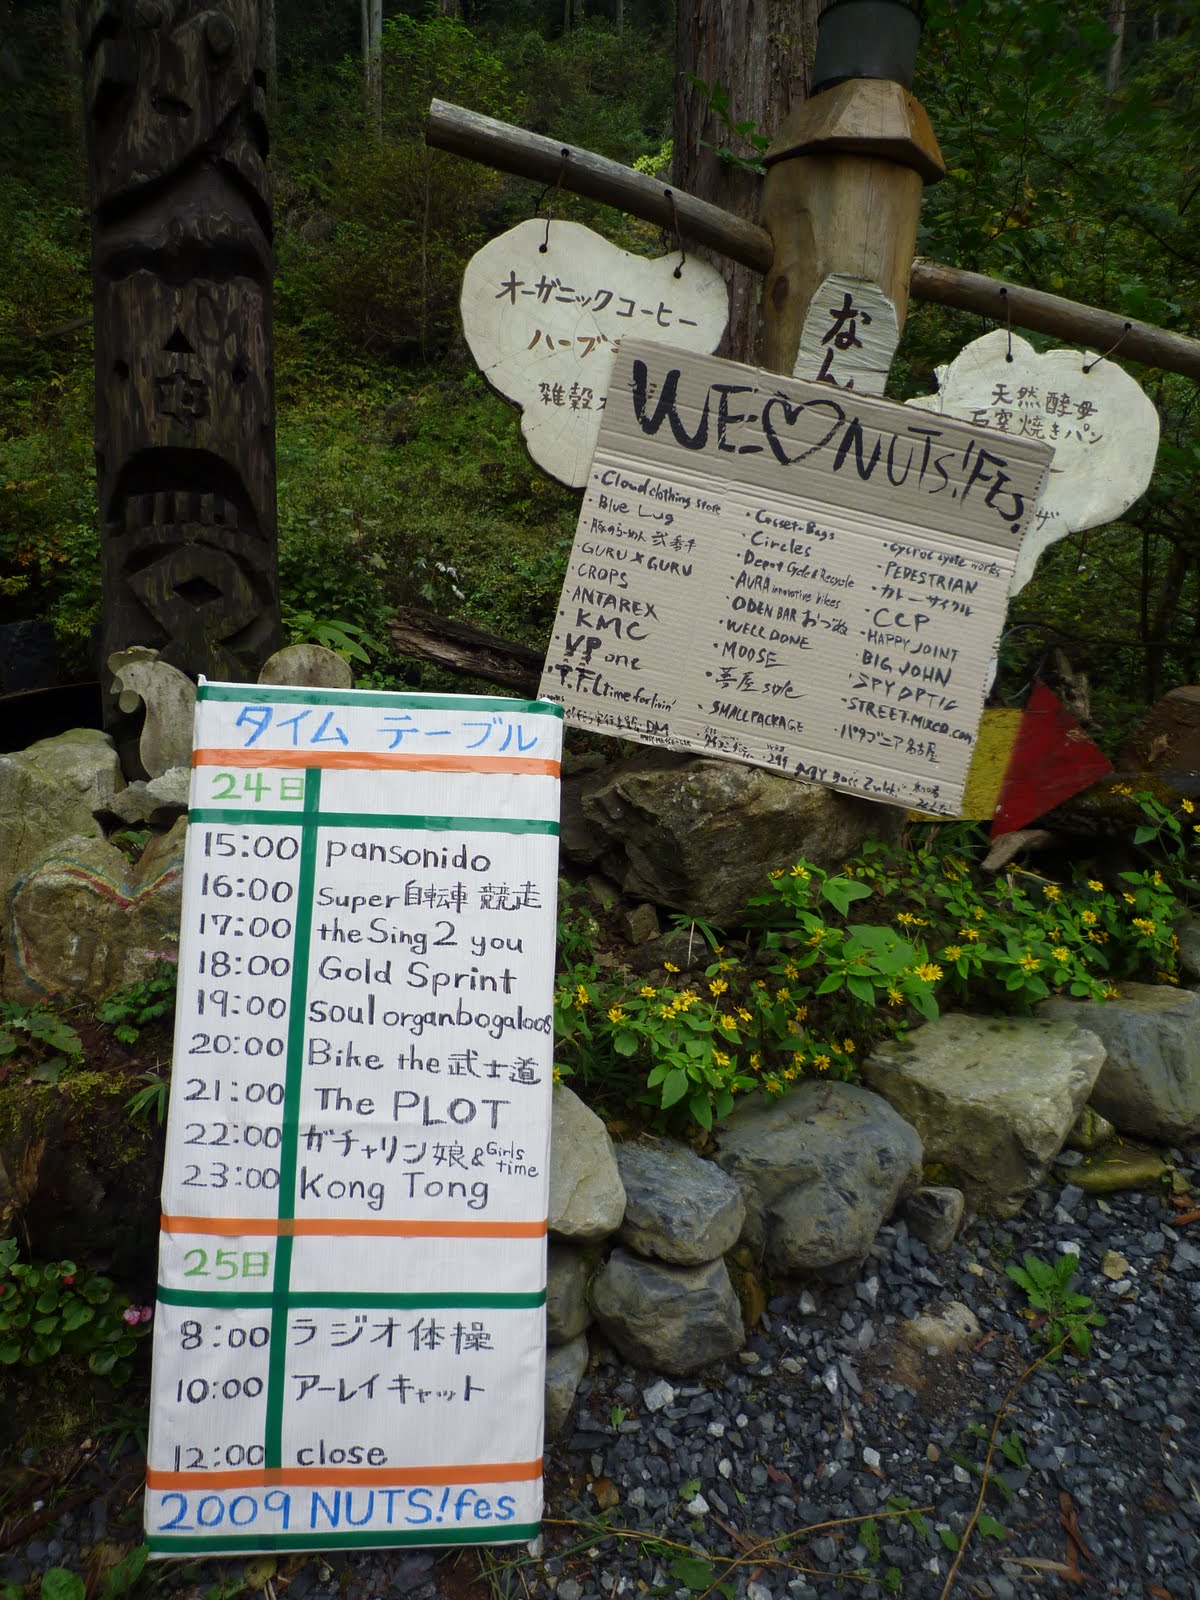 オーガニックコーヒー
ハーブ
雑穀
なん
天然酵母
石窯焼きパン
ザ
WE ♡ NUTS!Fes.
・Cloud clothing store
・Blue Lug
・豚のらーめん
・GURU×GURU
・CROPS
・ANTAREX
・KMC
・VP one
・T.F.L time for livin'
・Casset-Bags
・Circles
・Depot Cycle & Recycle
・AURA innovative bikes
・ODEN BAR おづね
・WELLDONE
・MOOSE
・夢屋 style
・SMALL PACKAGE
・cycroc cycle works
・PEDESTRIAN
・カレーサイクル
・CCP
・HAPPY JOINT
・BIG JOHN
・SPY OPTIC
・STREET-MIXED.com
・パタゴニア名古屋
タイム テーブル
24日
15:00 pansonido
16:00 Super自転車 競走
17:00 the Sing 2 you
18:00 Gold Sprint
19:00 Soul organbogaloos
20:00 Bike the 武士道
21:00 The PLOT
22:00 ガチャリン娘 & Girls time
23:00 Kong Tong
25日
8:00 ラジオ体操
10:00 アーレイキャット
12:00 close
2009 NUTS!fes